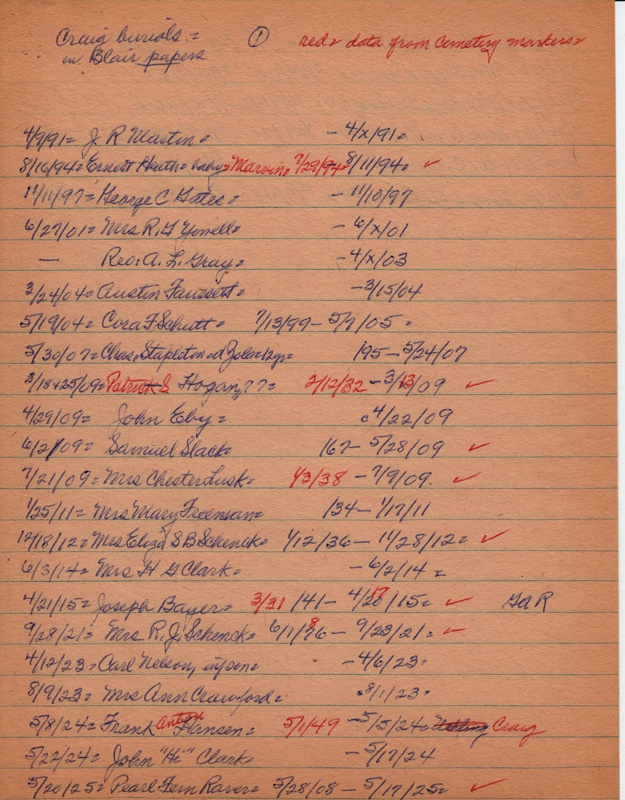 Craig burials = ① red = data from Cemetery markers =
in Blair papers
4/9/91 = J. R Martin = - 4/x/91 =
8/16/94 = Ernest Heath = baby = Marvin = 7/29/94 - 8/11/94 = ✓
11/11/97 = George C Gates = - 11/10/97
6/27/01 = Mrs R. G Yowell = - 6/x/01
— Rev. A. L. Gray = - 4/x/03
3/24/04 = Austin Faussett = - 3/15/04
5/19/04 = Cora F Schutt = 7/13/99 - 5/9/05 =
5/30/07 = Chas. Stapleton = d 12yr = 195 - 5/24/07
3/18+25/09 = Patrick S Hogan, ?? = 2/12/32 - 3/13/09 ✓
4/29/09 = John Eby = c4/22/09
6/2/09 = Samuel Slack = 167 - 5/28/09 ✓
7/21/09 = Mrs Chester Lusk = 1/3/38 - 7/9/09. ✓
1/25/11 = Mrs Mary Freeman = 134 - 1/17/11
12/18/12 = Mrs Eliza S B Schenck = 1/12/36 - 11/28/12 = ✓
6/3/14 = Mrs H G Clark = - 6/2/14 =
4/21/15 = Joseph Bayer = 3/31/41 - 4/17/15 = ✓ GaR
9/28/21 = Mrs R. J. Schenck = 6/1/86 - 9/23/21 = ✓
4/12/23 = Carl Nelson, - 4/6/23 =
8/9/23 = Mrs Ann Crawford = 8/1/23 =
5/8/24 = Frank Anton Hansen = 5/1/49 - 5/5/24 = Craig
5/22/24 = John "Hi" Clark - 5/17/24
5/20/25 = Pearl Fern Raver = 5/28/08 - 5/17/25 = ✓